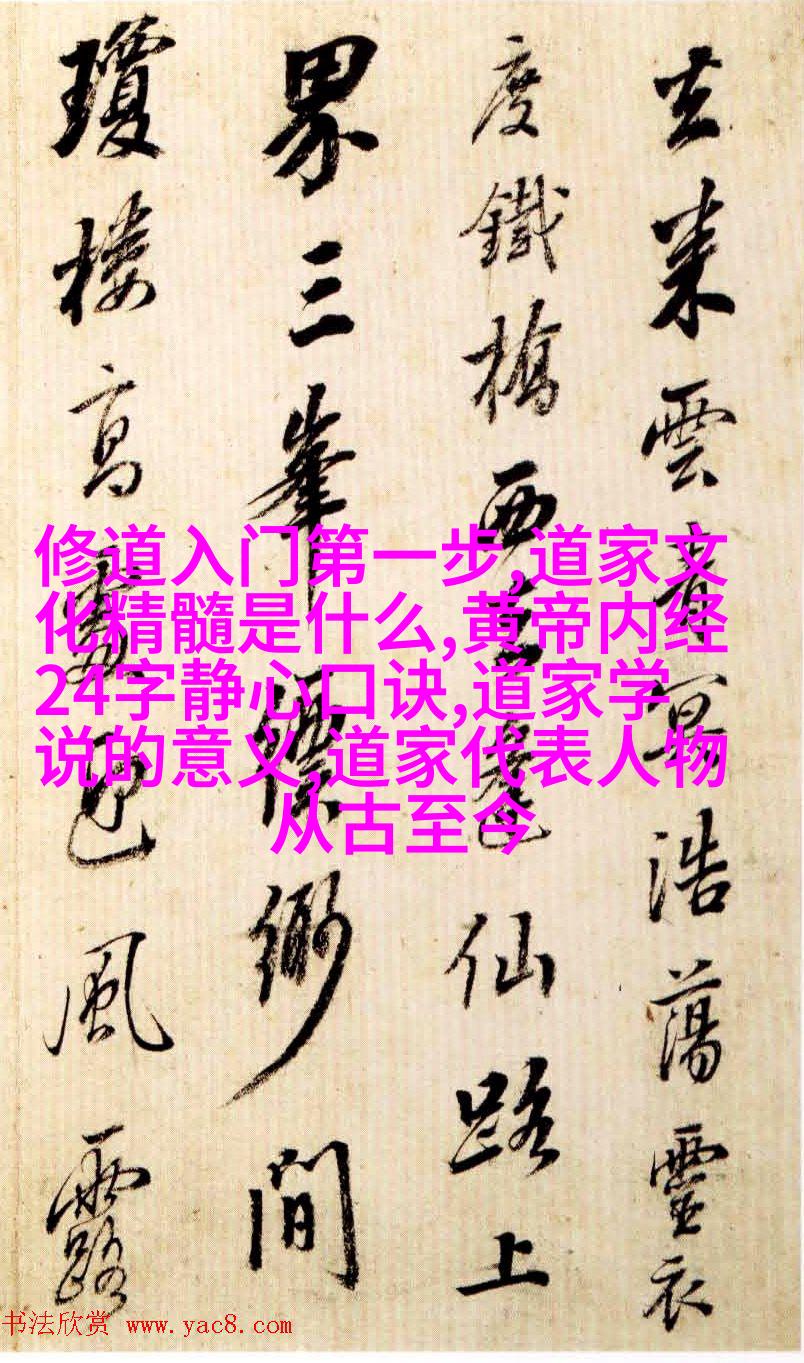 去来雲青冥浩蕩靈衣
度鐵橋西仙路上
界三峯縹緲間
瓊樓高處迥風露
修道入门第一步,道家文
化精髓是什么,黄帝内经
24字静心口诀,道家学
说的意义,道家代表人物
从古至今
书法欣赏 www.yac8.com